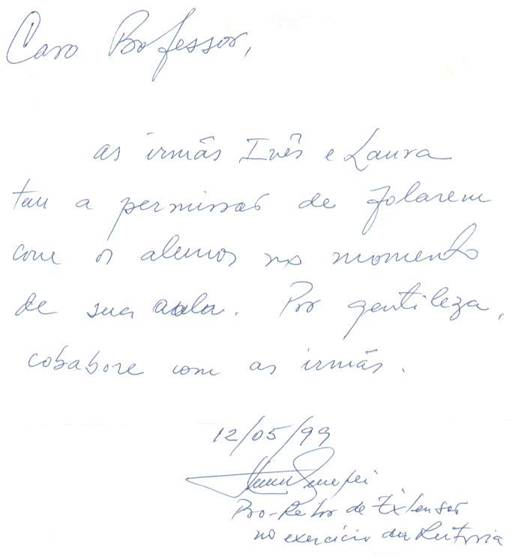 Caro Professor,
as irmãs Inês e Laura
tem a permissão de folarem
com os alunos no momento
de sua aula. Por gentileza,
cobabore com as irmãs.
12/05/99
Pro-Reitor de Extensão
no exercício da Reitoria